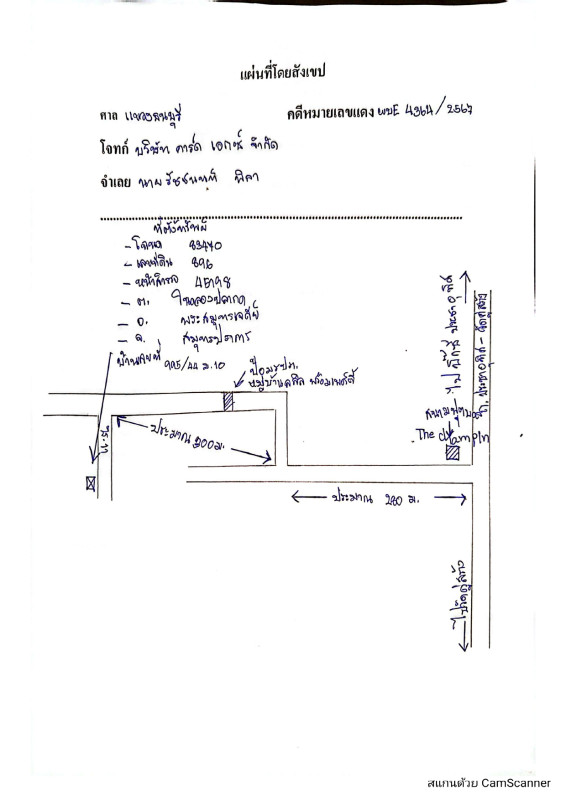 แผ่นที่โดยสังเขป
ศาล แขวงธนบุรี คดีหมายเลขแดง ผบE 4364/2567
โจทก์ บริษัท คาร์ด เอกซ์ จำกัด
จำเลย นาย
ที่ตั้งทรัพย์
- โฉนด 83470
- เลขที่ดิน 896
- หน้าสำรวจ 45198
- ต. ในคลองปลากด
- อ. พระสมุทรเจดีย์
- จ. สมุทรปราการ
บ้านเลขที่ 995/44 ม.10
ป้อมรปภ.
หมู่บ้าน พร้อมเพล์ส
ประมาณ 200 ม.
สนามฟุตบอล
The champion
ถ. ประชาอุทิศ - วัดคู่สร้าง
ไป ประชาอุทิศ
ประมาณ 280 ม.
ไปวัดคู่สร้าง
สแกนด้วย CamScanner